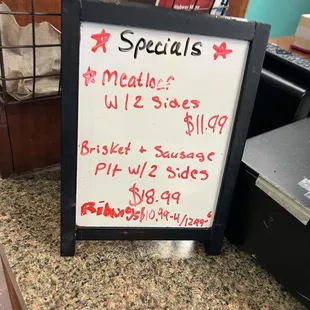 Specials
Meatloaf
W/ 2 Sides
$11.99
Brisket + Sausage
Plt W/ 2 Sides
$18.99
Ribwigs $10.99-4/12.99-6